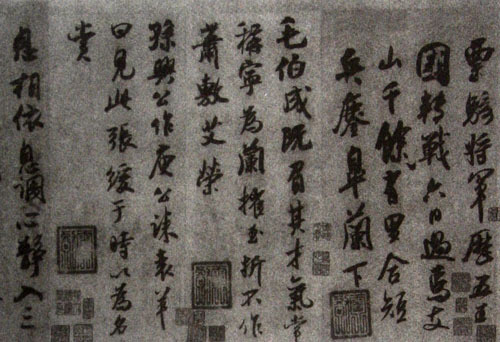 票騎將軍歷五王
國轉戰六日過焉支
山千餘有里合短
兵鏖皋蘭下
毛伯成既負其才氣常
稱寧為蘭摧玉折不作
蕭敷艾榮
孫興公作庾公誄袁羊
曰見此張緩于時以為名
賞
息相依息調心靜入三